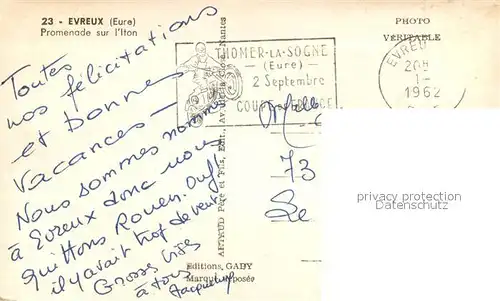 23 - EVREUX (Eure)
Promenade sur l'Iton
PHOTO
VÉRITABLE
THOMER-LA-SOGNE
(Eure)
2 Septembre
COURSE
EVREU
20H
1-
1962
Toutes
nos félicitations
et bonnes
vacances -
Nous sommes nommés
à Evreux donc nous
quittons Rouen. Ouf!
il y avait trop de
Grosses bises
à tous
Jacqueline
ARTAUD Père et Fils, Édit., Nantes
Editions, GABY
Marque déposée
Melle
73
Le
privacy protection
Datenschutz